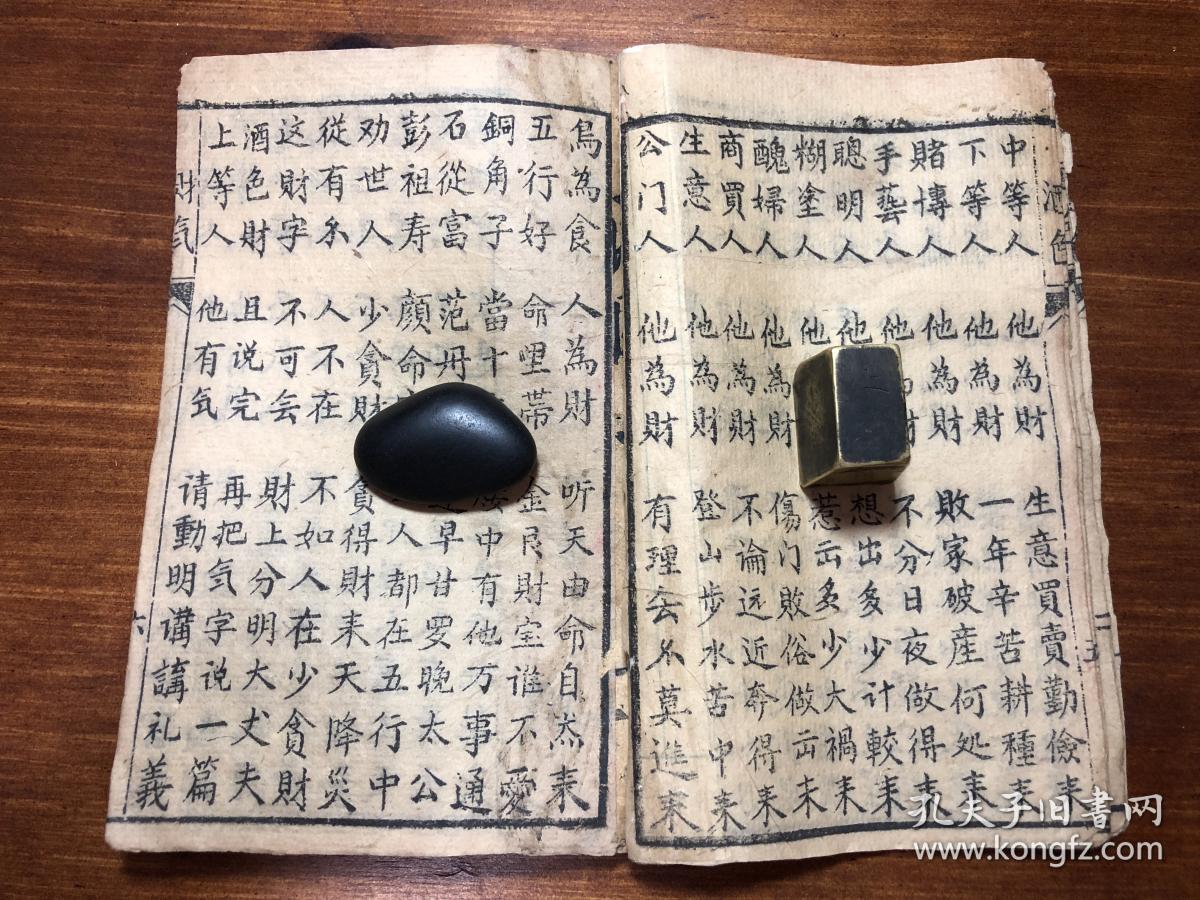 酒色
中等人 他為財 生意買賣勤儉来
下等人 他為財 一年辛苦耕種来
賭博人 他為財 敗家破產何処来
手藝人 他 財 不分日夜做得来
聰明人 他 想出多少計較来
糊塗人 他 惹出多少大禍来
醜婦人 他為財 傷门敗俗做出来
商買人 他為財 不論远近奔得来
生意人 他為財 登山步水苦中来
公门人 他為財 有理会尔莫進来
鳥為食 人為財 听天由命自杰来
五行好 命哩带 金艮財宝谁不愛
銅角子 當十 中有他万事通
石從富 范丹 早甘罗晚太公
彭祖寿 顔命 人都在五行中
劝世人 少貪財 貪得財来天降災
從有尔 人不在 不如人在少貪財
这財字 不可会 財上分明大丈夫
酒色財 且说完 再把気字说一篇
上等人 他有気 请動明講講礼義
財気
六
二五
孔夫子旧書网
www.kongfz.com